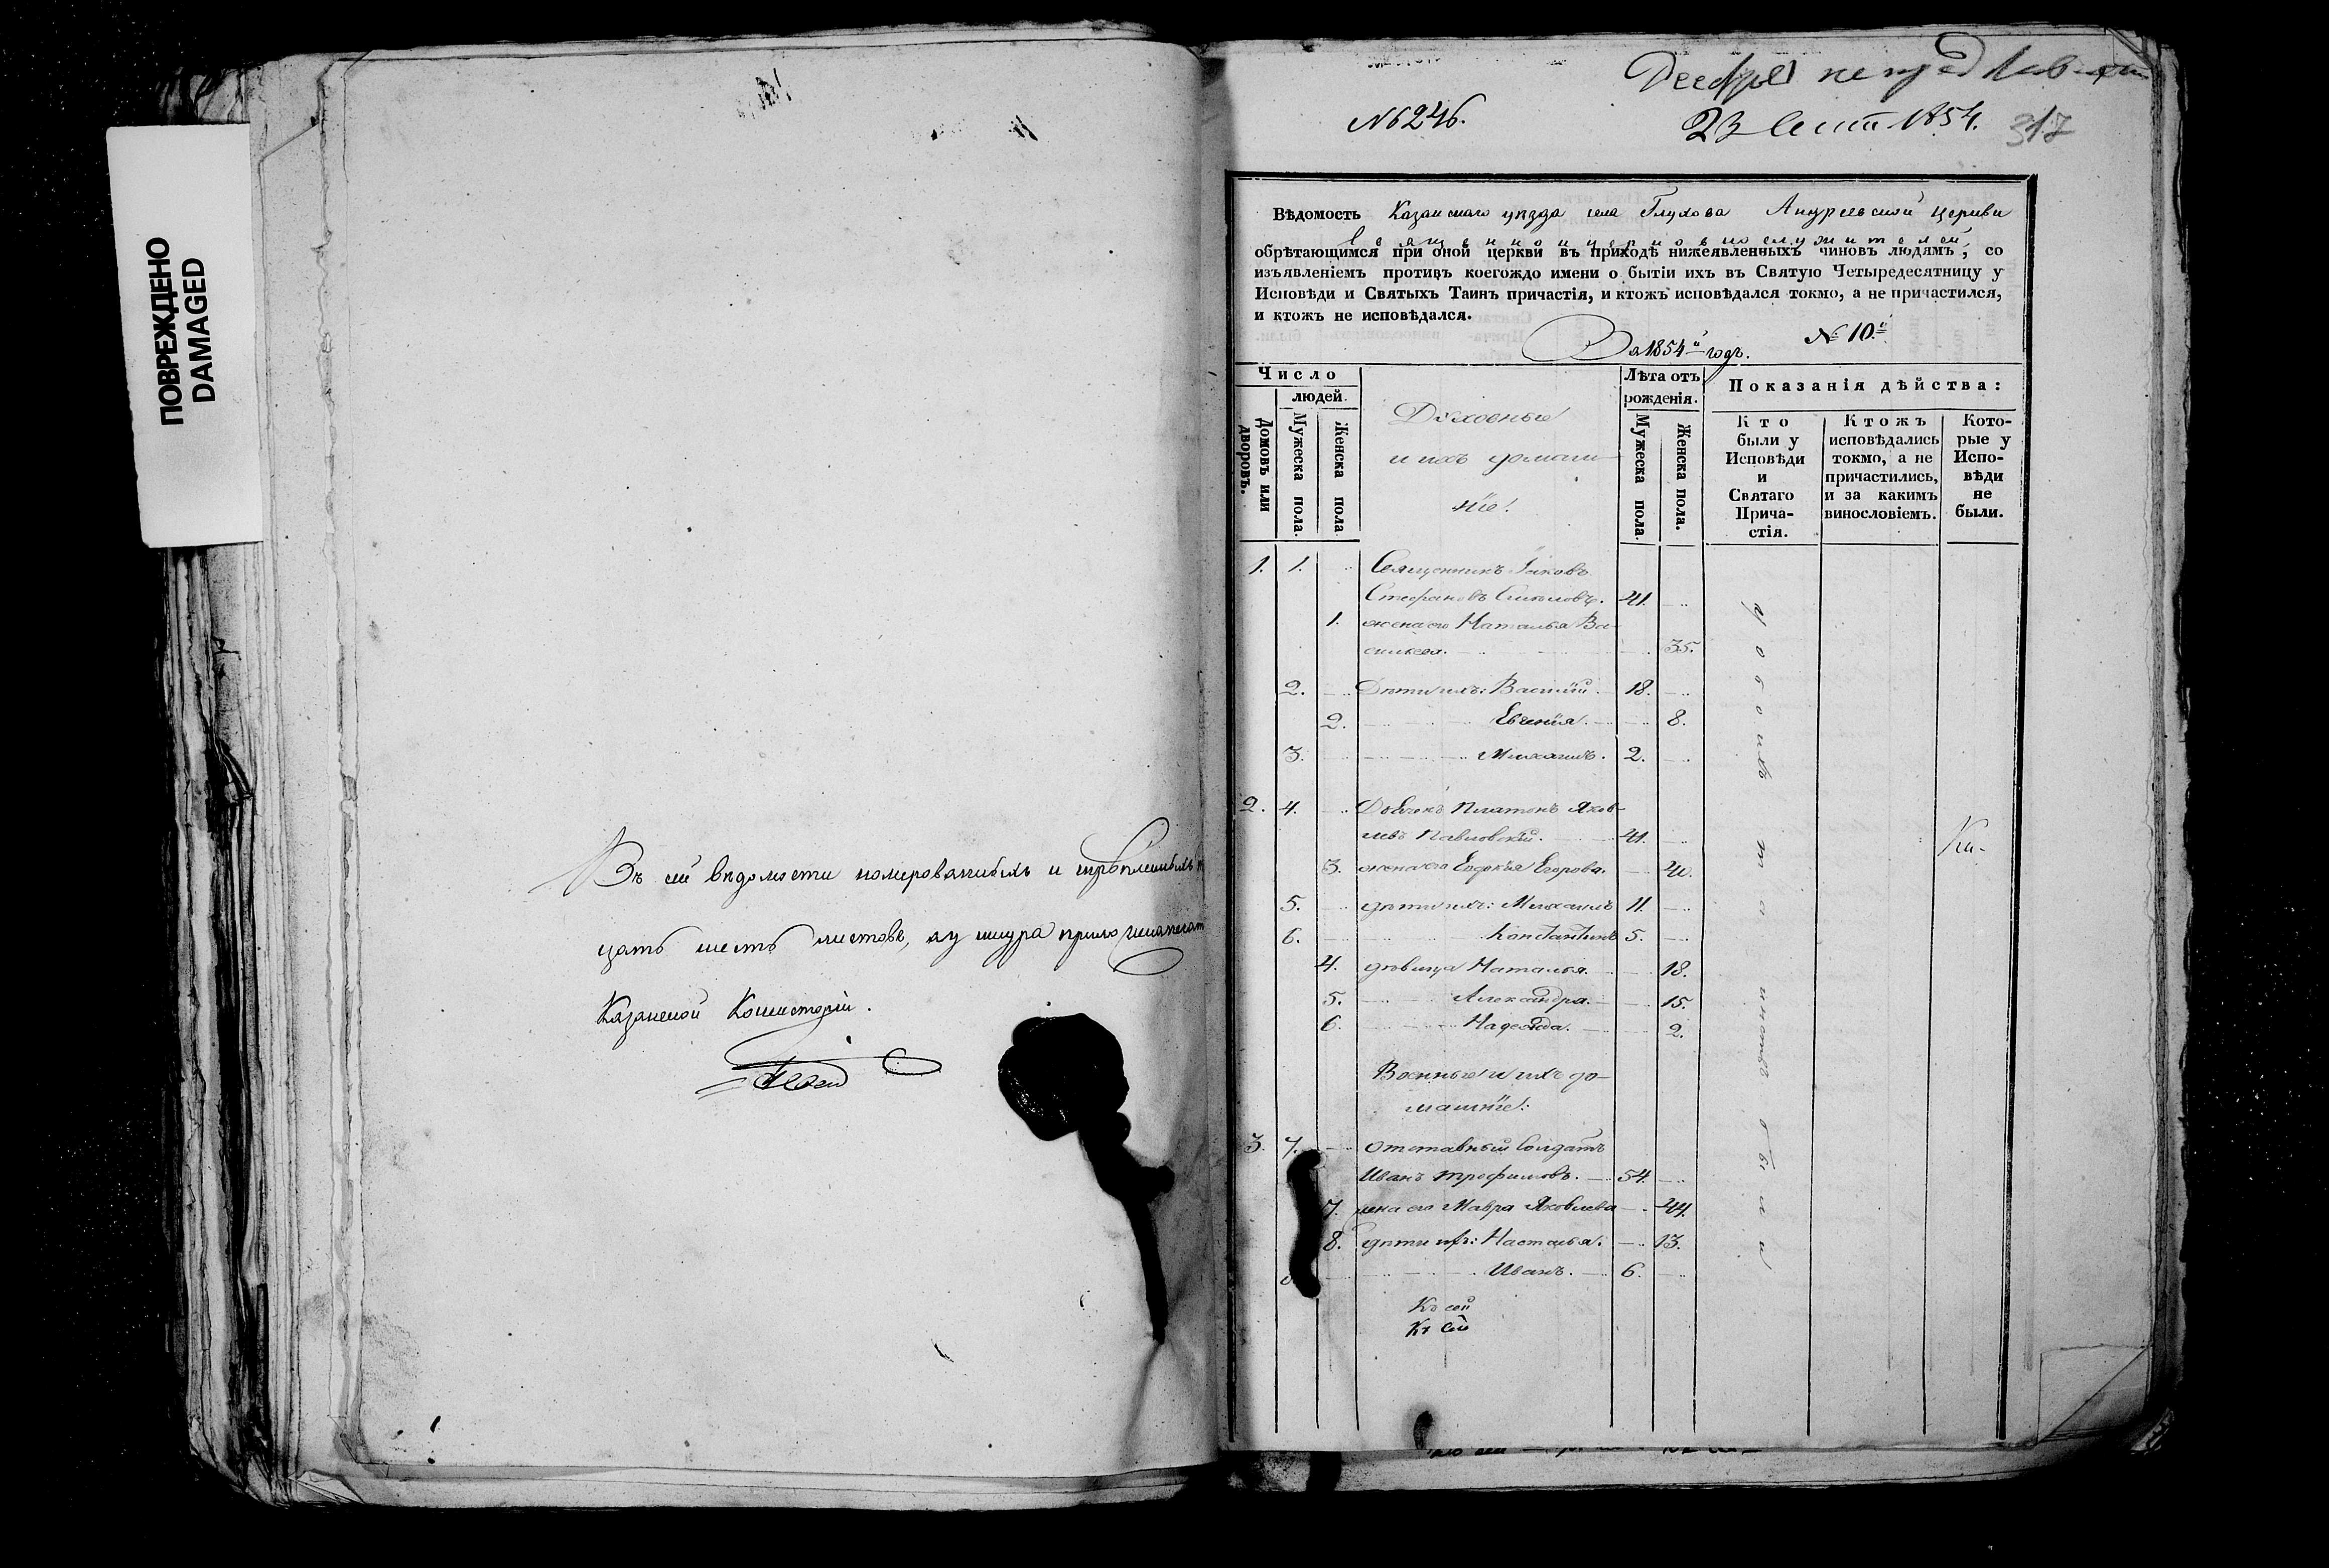 ПОВРЕЖДЕНО
DAMAGED
Въ сей ведомости номерованныхъ и
цать шесть листовъ, а у шнура приложена печать
Казанской Консисторіи.
№ 6246.
23 Сент. 1854.
317
Вѣдомость Казанскаго уѣзда села Глухова Андреевской церкви
священно и церковно служителей,
обрѣтающимся при оной церкви въ приходѣ нижеявленныхъ чиновъ людямъ, со
изъявленіемъ противъ коегождо имени о бытіи ихъ въ Святую Четыредесятницу у
Исповѣди и Святыхъ Таинъ причастія, и ктожъ исповѣдался токмо, а не причастился,
и ктожъ не исповѣдался.
За 1854й годъ. № 10й
Число
людей.
Домовъ или дворовъ.
Мужеска пола.
Женска пола
Духовные
и ихъ домаш-
ніе:
Лѣта отъ
рожденія.
Мужеска пола.
Женска пола.
Показанія дѣйства:
Кто
были у
Исповѣди
и
Святаго
Прича-
стія.
Ктожъ
исповѣдались
токмо, а не
причастились,
и за какимъ
винословіемъ.
Кото-
рые у
Испо-
вѣди
не
были.
1. 1. Священникъ Іаковъ
Стефановъ 41.
1. жена его Наталья Ва-
сильева. 35.
2. Дѣти ихъ: Василій. 18.
2. Евгенія. 8.
3. Михаилъ. 2.
2. 4. Дьячекъ Платонъ Яков-
левъ Павловскій. 41.
3. жена его Евдокія Егорова. 40.
5. дѣти ихъ: Михаилъ 11.
6. Константинъ 5.
4. дѣвица Наталья. 18.
5. Александра. 15.
6. Надежда. 2.
Военные и ихъ до-
машніе:
3. 7. отставный Солдатъ
Иванъ Трофимовъ. 54.
7. жена его Мавра Яковлева 44.
8. дѣти ихъ: Настасья. 13.
Иванъ. 6.
Къ сей
Къ сей
у обоихъ таинствъ были
Ка-